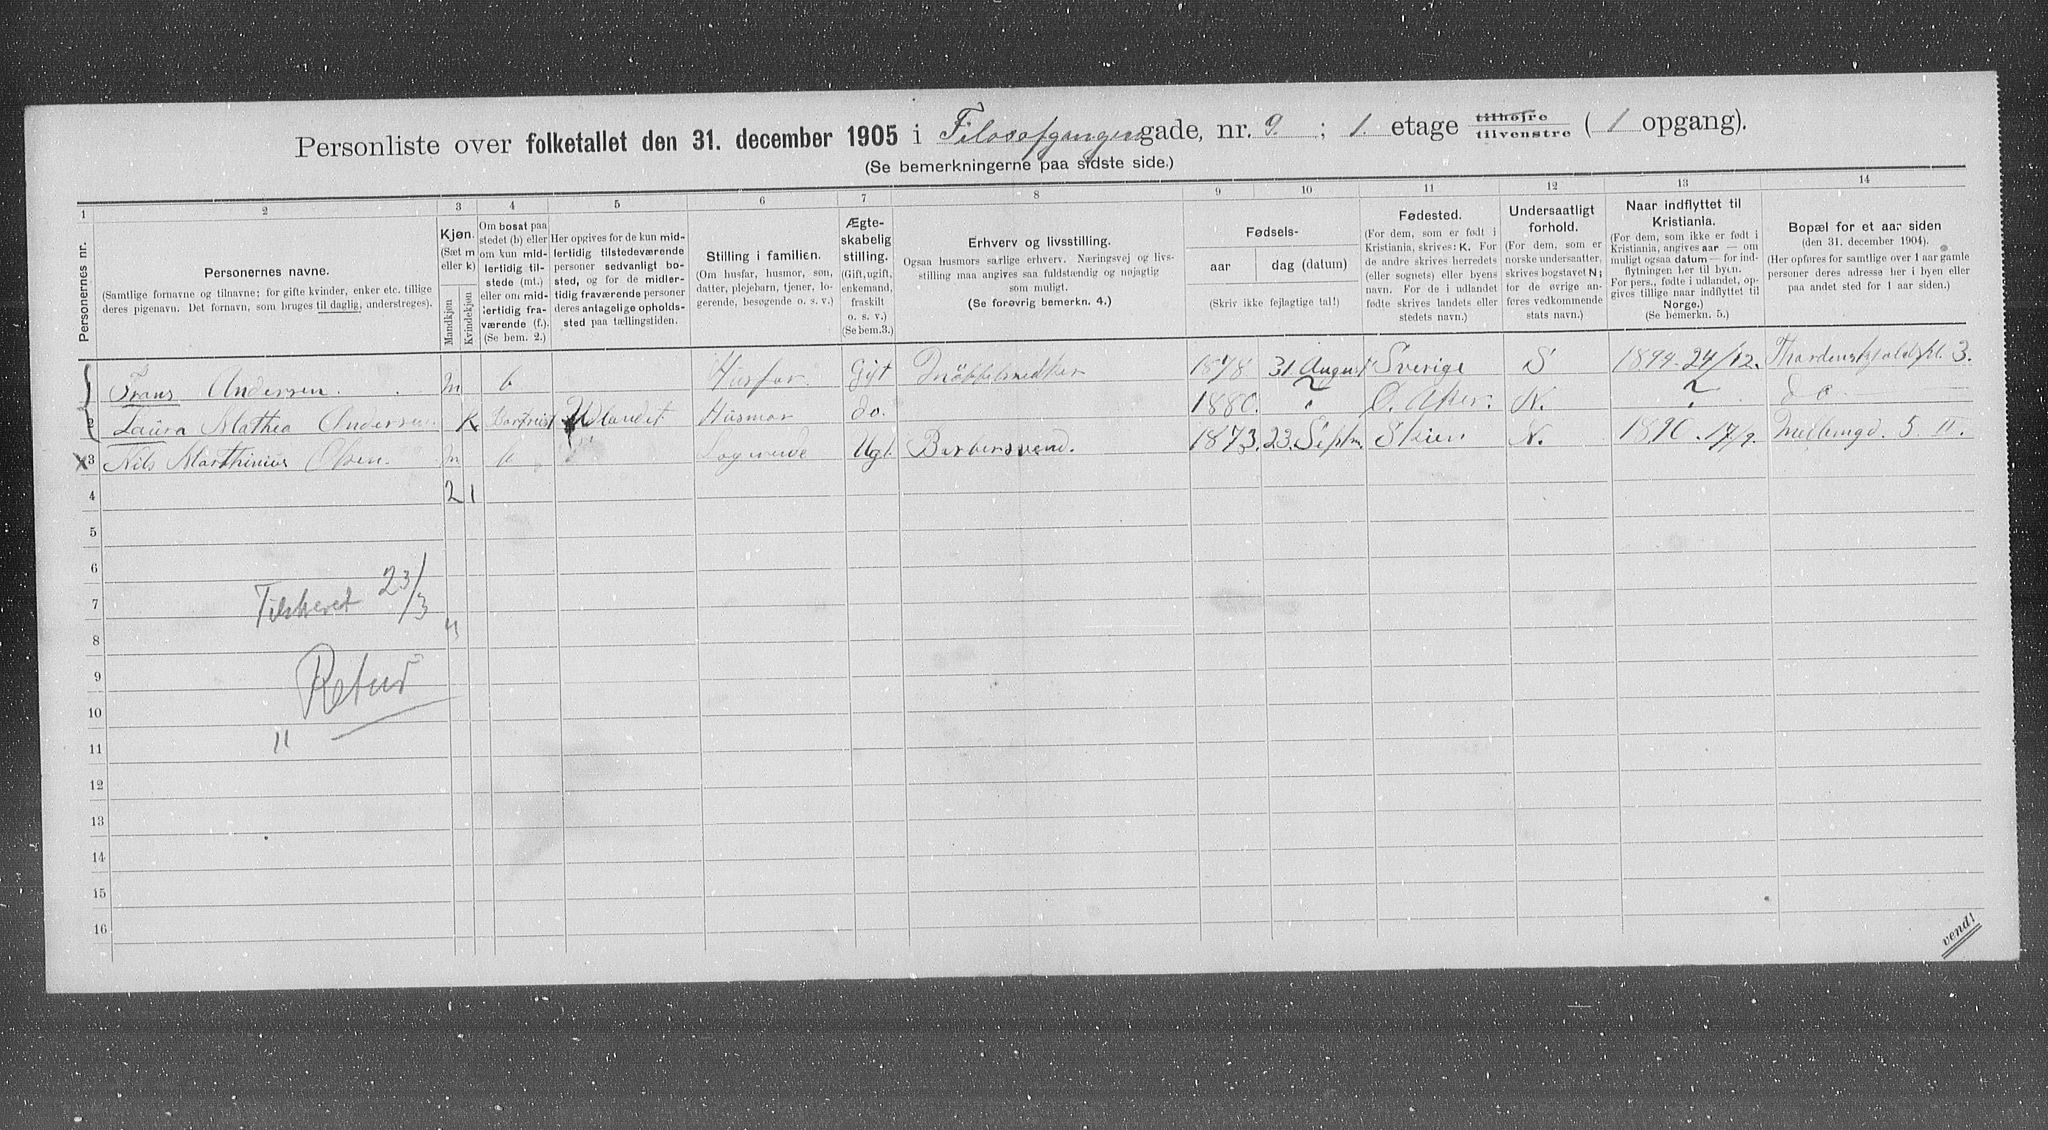 Personliste over folketallet den 31. december 1905 i Filosofgangengade, nr. 9. ; 1. etage tilhøjre tilvenstre ( 1 opgang).
(Se bemerkningerne paa sidste side.)
1 2 3 4 5 6 7 8 9 10 11 12 13 14
Personernes nr.
Personernes navne.
(Samtlige fornavne og tilnavne; for gifte kvinder, enker etc. tillige
deres pigenavn. Det fornavn, som bruges til daglig, understreges).
Kjøn.
(Sæt m
eller k)
Mandkjøn
Kvindekjøn
Om bosat paa
stedet (b) eller
om kun mid-
lertidig til-
stede (mt.)
eller om mid-
lertidig fra-
værende (f.).
(Se bem. 2.)
Her opgives for de kun mid-
lertidig tilstedeværende
personer sedvanligt bo-
sted, og for de midler-
tidig fraværende personer
deres antagelige opholds-
sted paa tællingstiden.
Stilling i familien.
(Om husfar, husmor, søn,
datter, plejebarn, tjener, lo-
gerende, besøgende o. s. v.)
Ægte-
skabelig
stilling.
(Gift, ugift,
enkemand,
fraskilt
o. s. v.)
(Se bem.3.)
Erhverv og livsstilling.
Ogsaa husmors særlige erhverv. Næringsvej og livs-
stilling maa angives saa fuldstændig og nøjagtig
som muligt.
(Se forøvrig bemerkn. 4.)
Fødsels-
aar
dag (datum)
(Skriv ikke fejlagtige tal!)
Fødested.
(For dem, som er født i
Kristiania, skrives: K. For
de andre skrives herredets
(eller sognets) eller byens
navn. For de i udlandet
fødte skrives landets eller
stedets navn.)
Undersaatligt
forhold.
(For dem, som er
norske undersaatter,
skrives bogstavet N;
for de øvrige an-
føres vedkommende
stats navn.)
Naar indflyttet til
Kristiania.
(For dem, som ikke er født i
Kristiania, angives aar — om
muligt ogsaa datum — for ind-
flytningen her til byen.
For pers., fødte i udlandet, op-
gives tillige naar indflyttet til
Norge.)
(Se bemerkn. 5.)
Bopæl for et aar siden
(den 31. december 1904).
(Her opføres for samtlige over 1 aar gamle
personer deres adresse her i byen eller
paa andet sted for 1 aar siden.)
Frans Andersen. m b Husfar. Gift Møbbelsnedker 1878 31 August Sverige S 1894. 24/12. Thordenskjoldspl. 3.
2 Laura Mathea Andersen. K Bortreist Udlandet Husmor do. 1880. ? Ø. Aker. N. ? do
x3 Nils Marthinius Olsen. m b Logerende Ugi. Barbersvend. 1873. 23. Septm. Steien N. 1890. 17/9.
4 2 1
5
6
7 Tilskeret 23/3
8
9 Retur
10
11 "
12
13
14
15
16
vend!